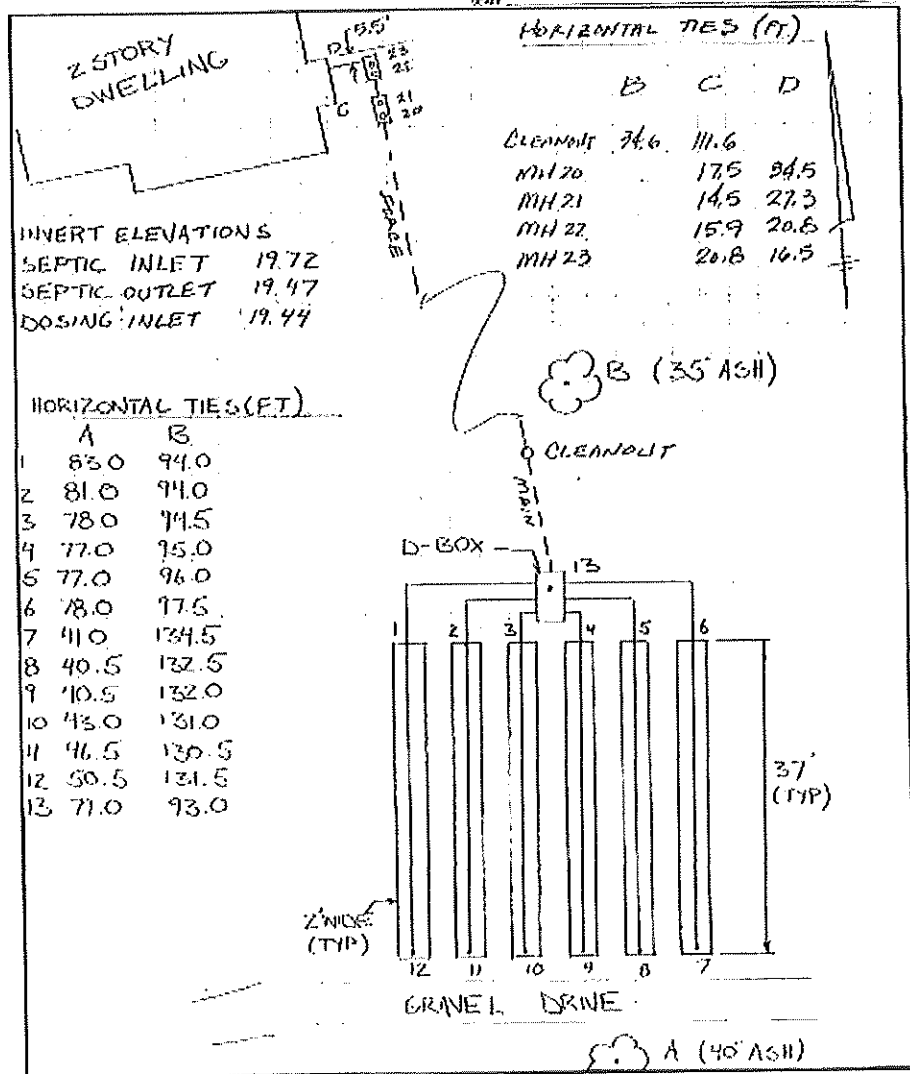 2 STORY
DWELLING
D
5.5'
23
22
C
21
20
HORIZONTAL TIES (FT)
B C D
CLEANOUT 34.6 111.6
MH 20 17.5 34.5
MH 21 14.5 27.3
MH 22 15.9 20.8
MH 23 20.8 16.5
FORCE
INVERT ELEVATIONS
SEPTIC INLET 19.72
SEPTIC OUTLET 19.47
DOSING INLET 19.44
B (35" ASH)
CLEANOUT
MAIN
HORIZONTAL TIES (FT)
A B
1 83.0 94.0
2 81.0 94.0
3 78.0 94.5
4 77.0 95.0
5 77.0 96.0
6 78.0 97.5
7 41.0 134.5
8 40.5 132.5
9 40.5 132.0
10 43.0 131.0
11 46.5 130.5
12 50.5 131.5
13 79.0 93.0
D-BOX
13
1 2 3 4 5 6
37'
(TYP)
2' WIDE
(TYP)
12 11 10 9 8 7
GRAVEL DRIVE
A (40" ASH)